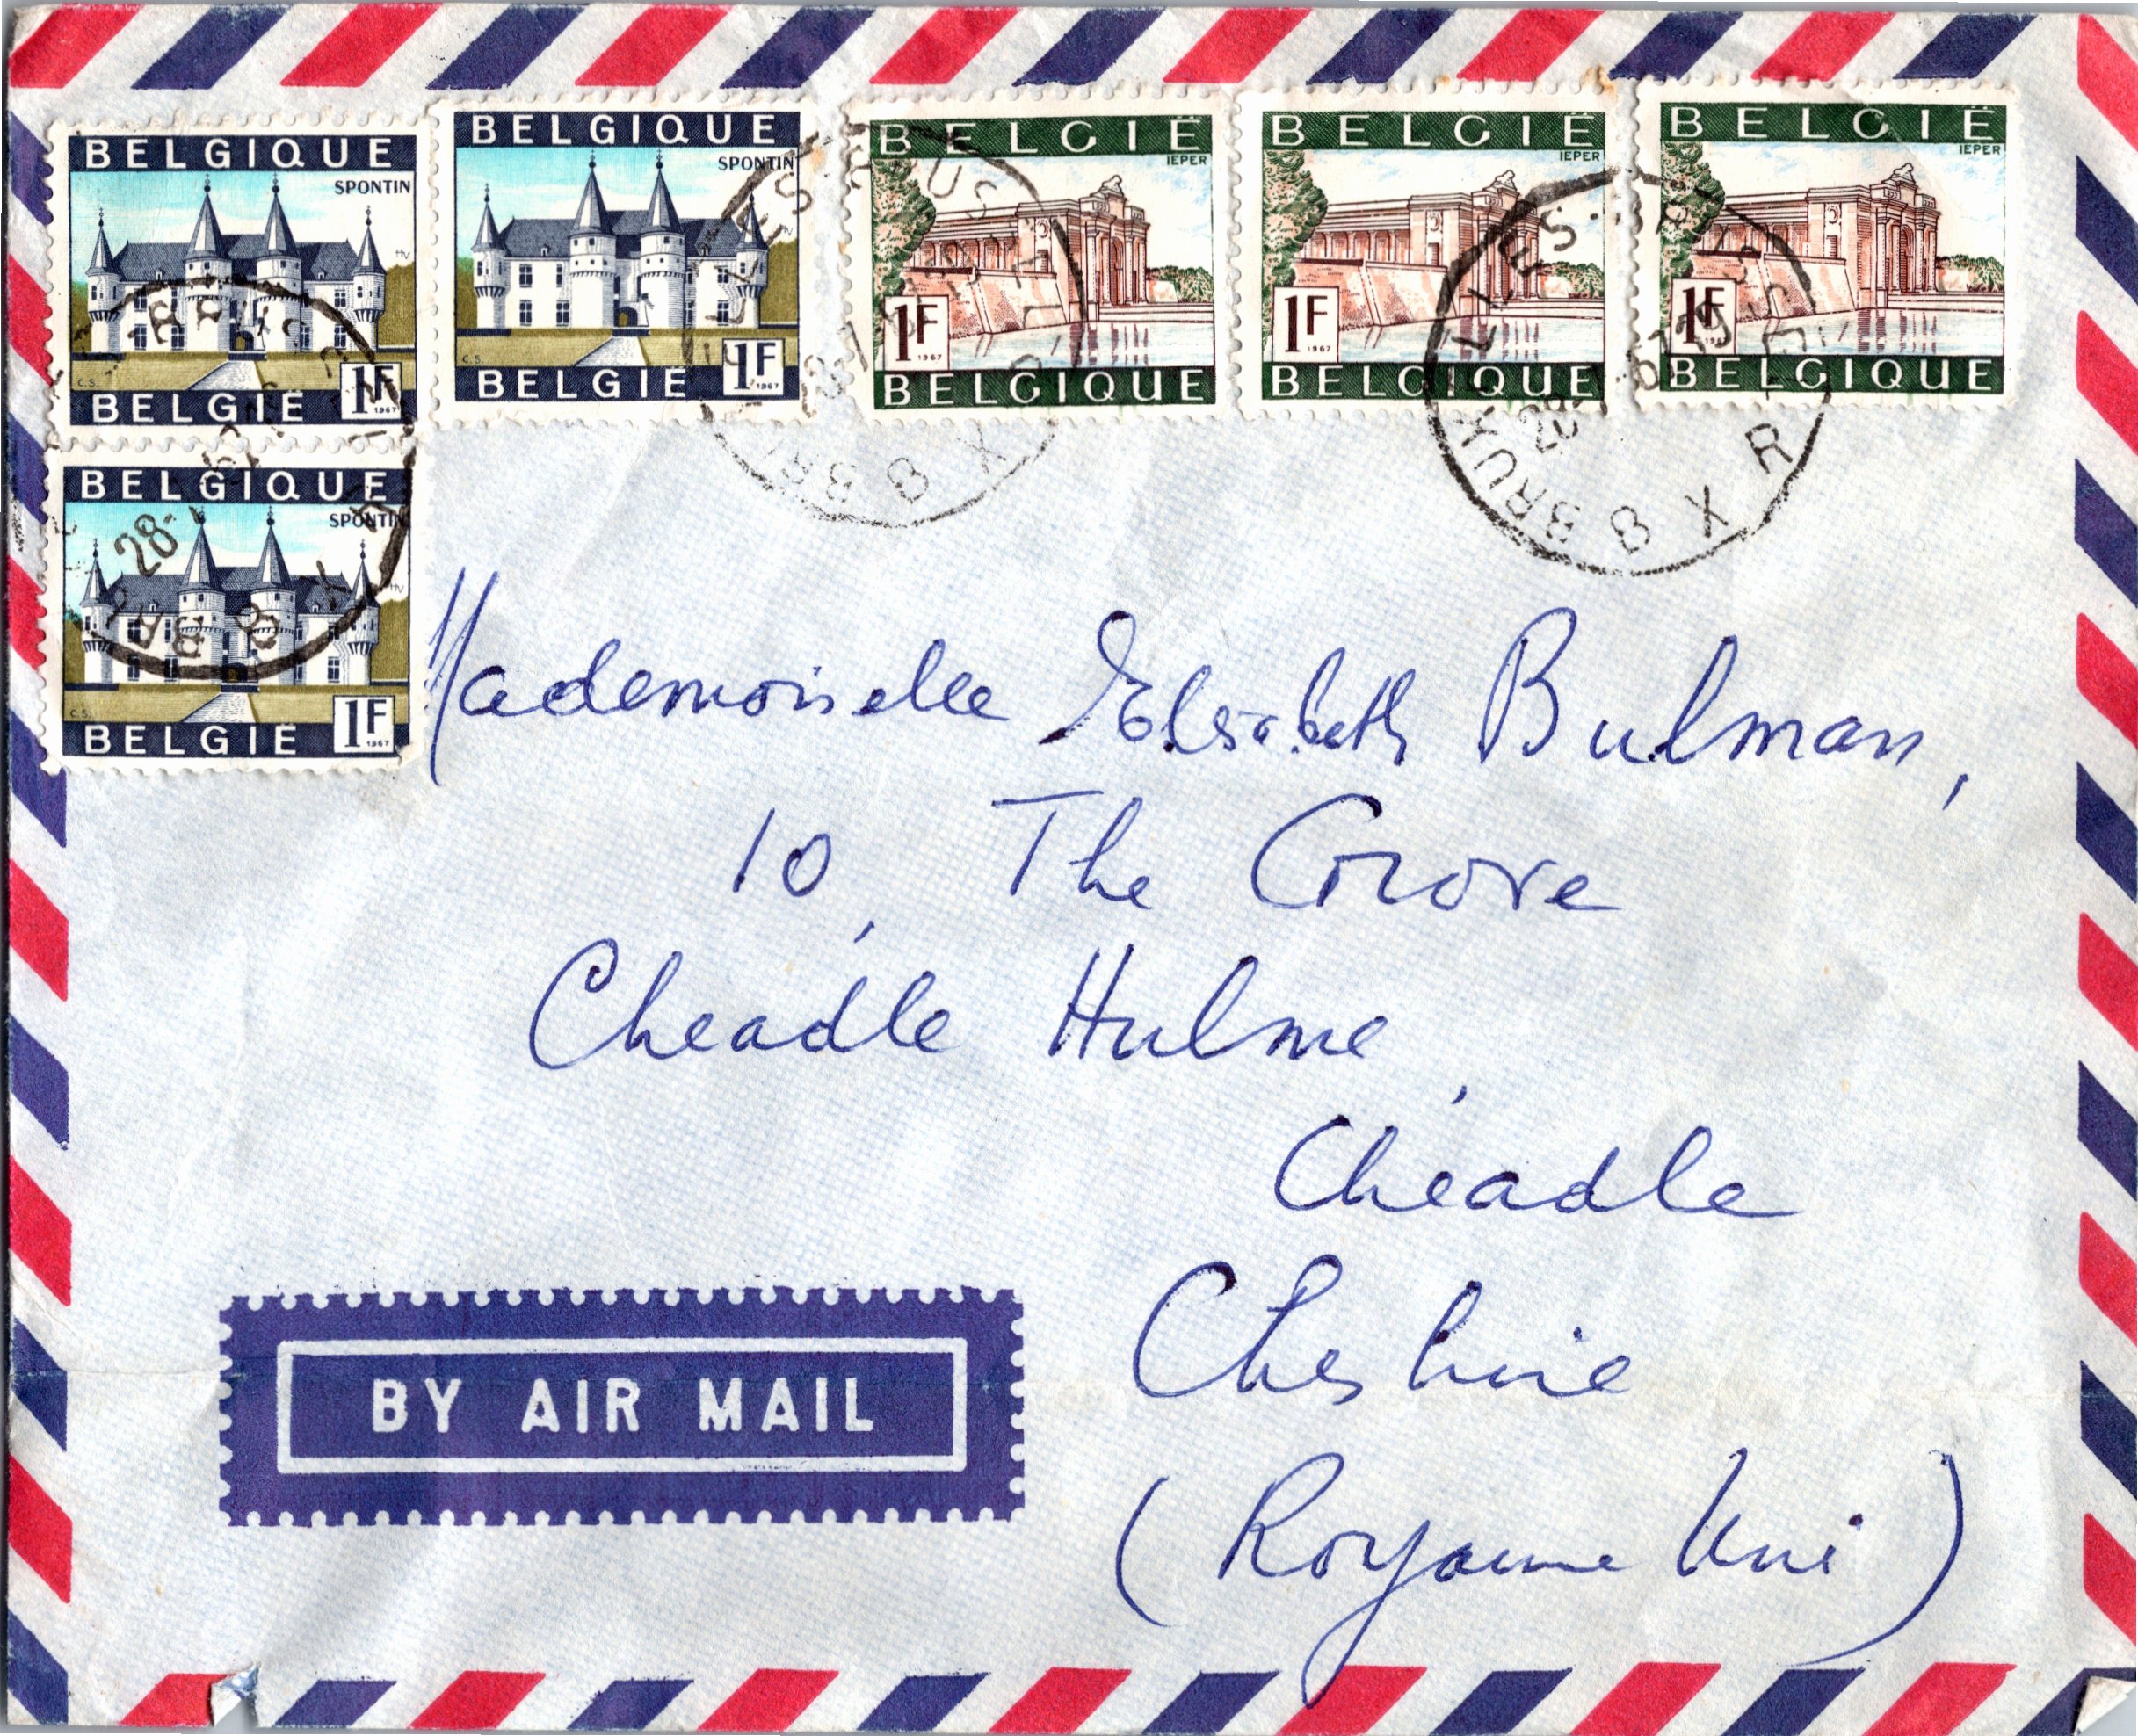 BELGIQUE
SPONTIN
C.S. HV
BELGIË 1F 1967
BELGIQUE
SPONTIN
C.S. HV
BELGIË 1F 1967
BELGIË
IEPER
1F 1967
BELGIQUE
BELGIË
IEPER
1F 1967
BELGIQUE
BELGIË
IEPER
1F 1967
BELGIQUE
BELGIQUE
SPONTIN
C.S. HV
BELGIË 1F 1967
28-
B X
B X R
Mademoiselle Elisabeth Bulman,
10, The Grove
Cheadle Hulme,
Cheadle
Cheshire
(Royaume Uni)
BY AIR MAIL